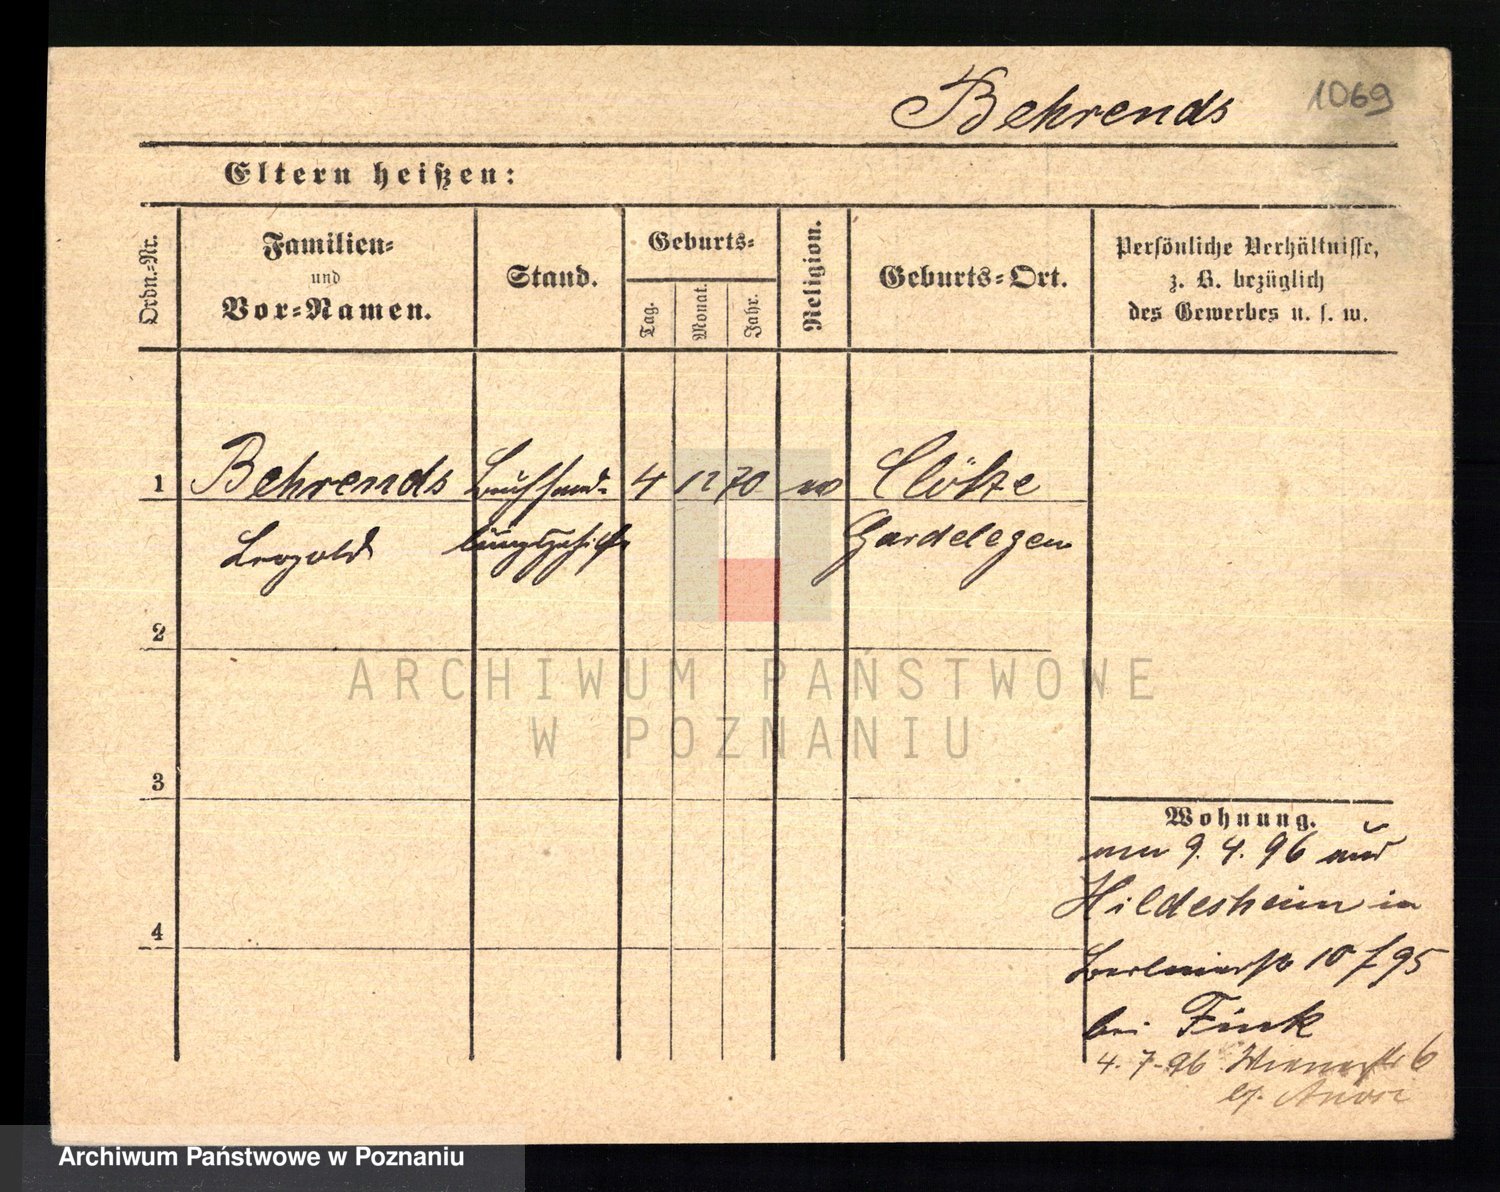 Behrends
1069
Eltern heißen:
Ordn.-Nr.
Familien-
und
Vor-Namen.
Stand.
Geburts-
Tag.
Monat.
Jahr.
Religion.
Geburts-Ort.
Persönliche Verhältnisse,
z. B. bezüglich
des Gewerbes u. s. w.
1
Behrends
Buchhand-
4
12
70
Clötze
Leopold
lungsgehilfe
Gardelegen
2
ARCHIWUM PAŃSTWOWE
W POZNANIU
3
Wohnung.
9. 4. 96 aus
Hildesheim in
4
Berlinerstr 10 f 95
bei Fink
4. 7. 96 Wienerstr 6
Archiwum Państwowe w Poznaniu